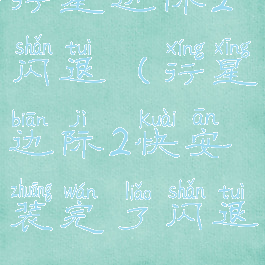 行星边际2
shǎn tuì xíng xīng
闪退（行星
biān jì kuài ān
边际2快安
zhuāng wán liǎo shǎn tuì
装完了闪退